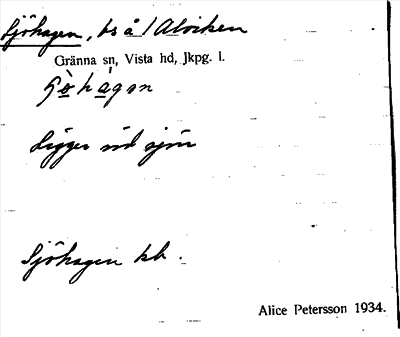 Sjöhagen, bs å /Alviken
Gränna sn, Vista hd, Jkpg. l.
Ligger vid sjön
Sjöhagen kb.
Alice Petersson 1934.